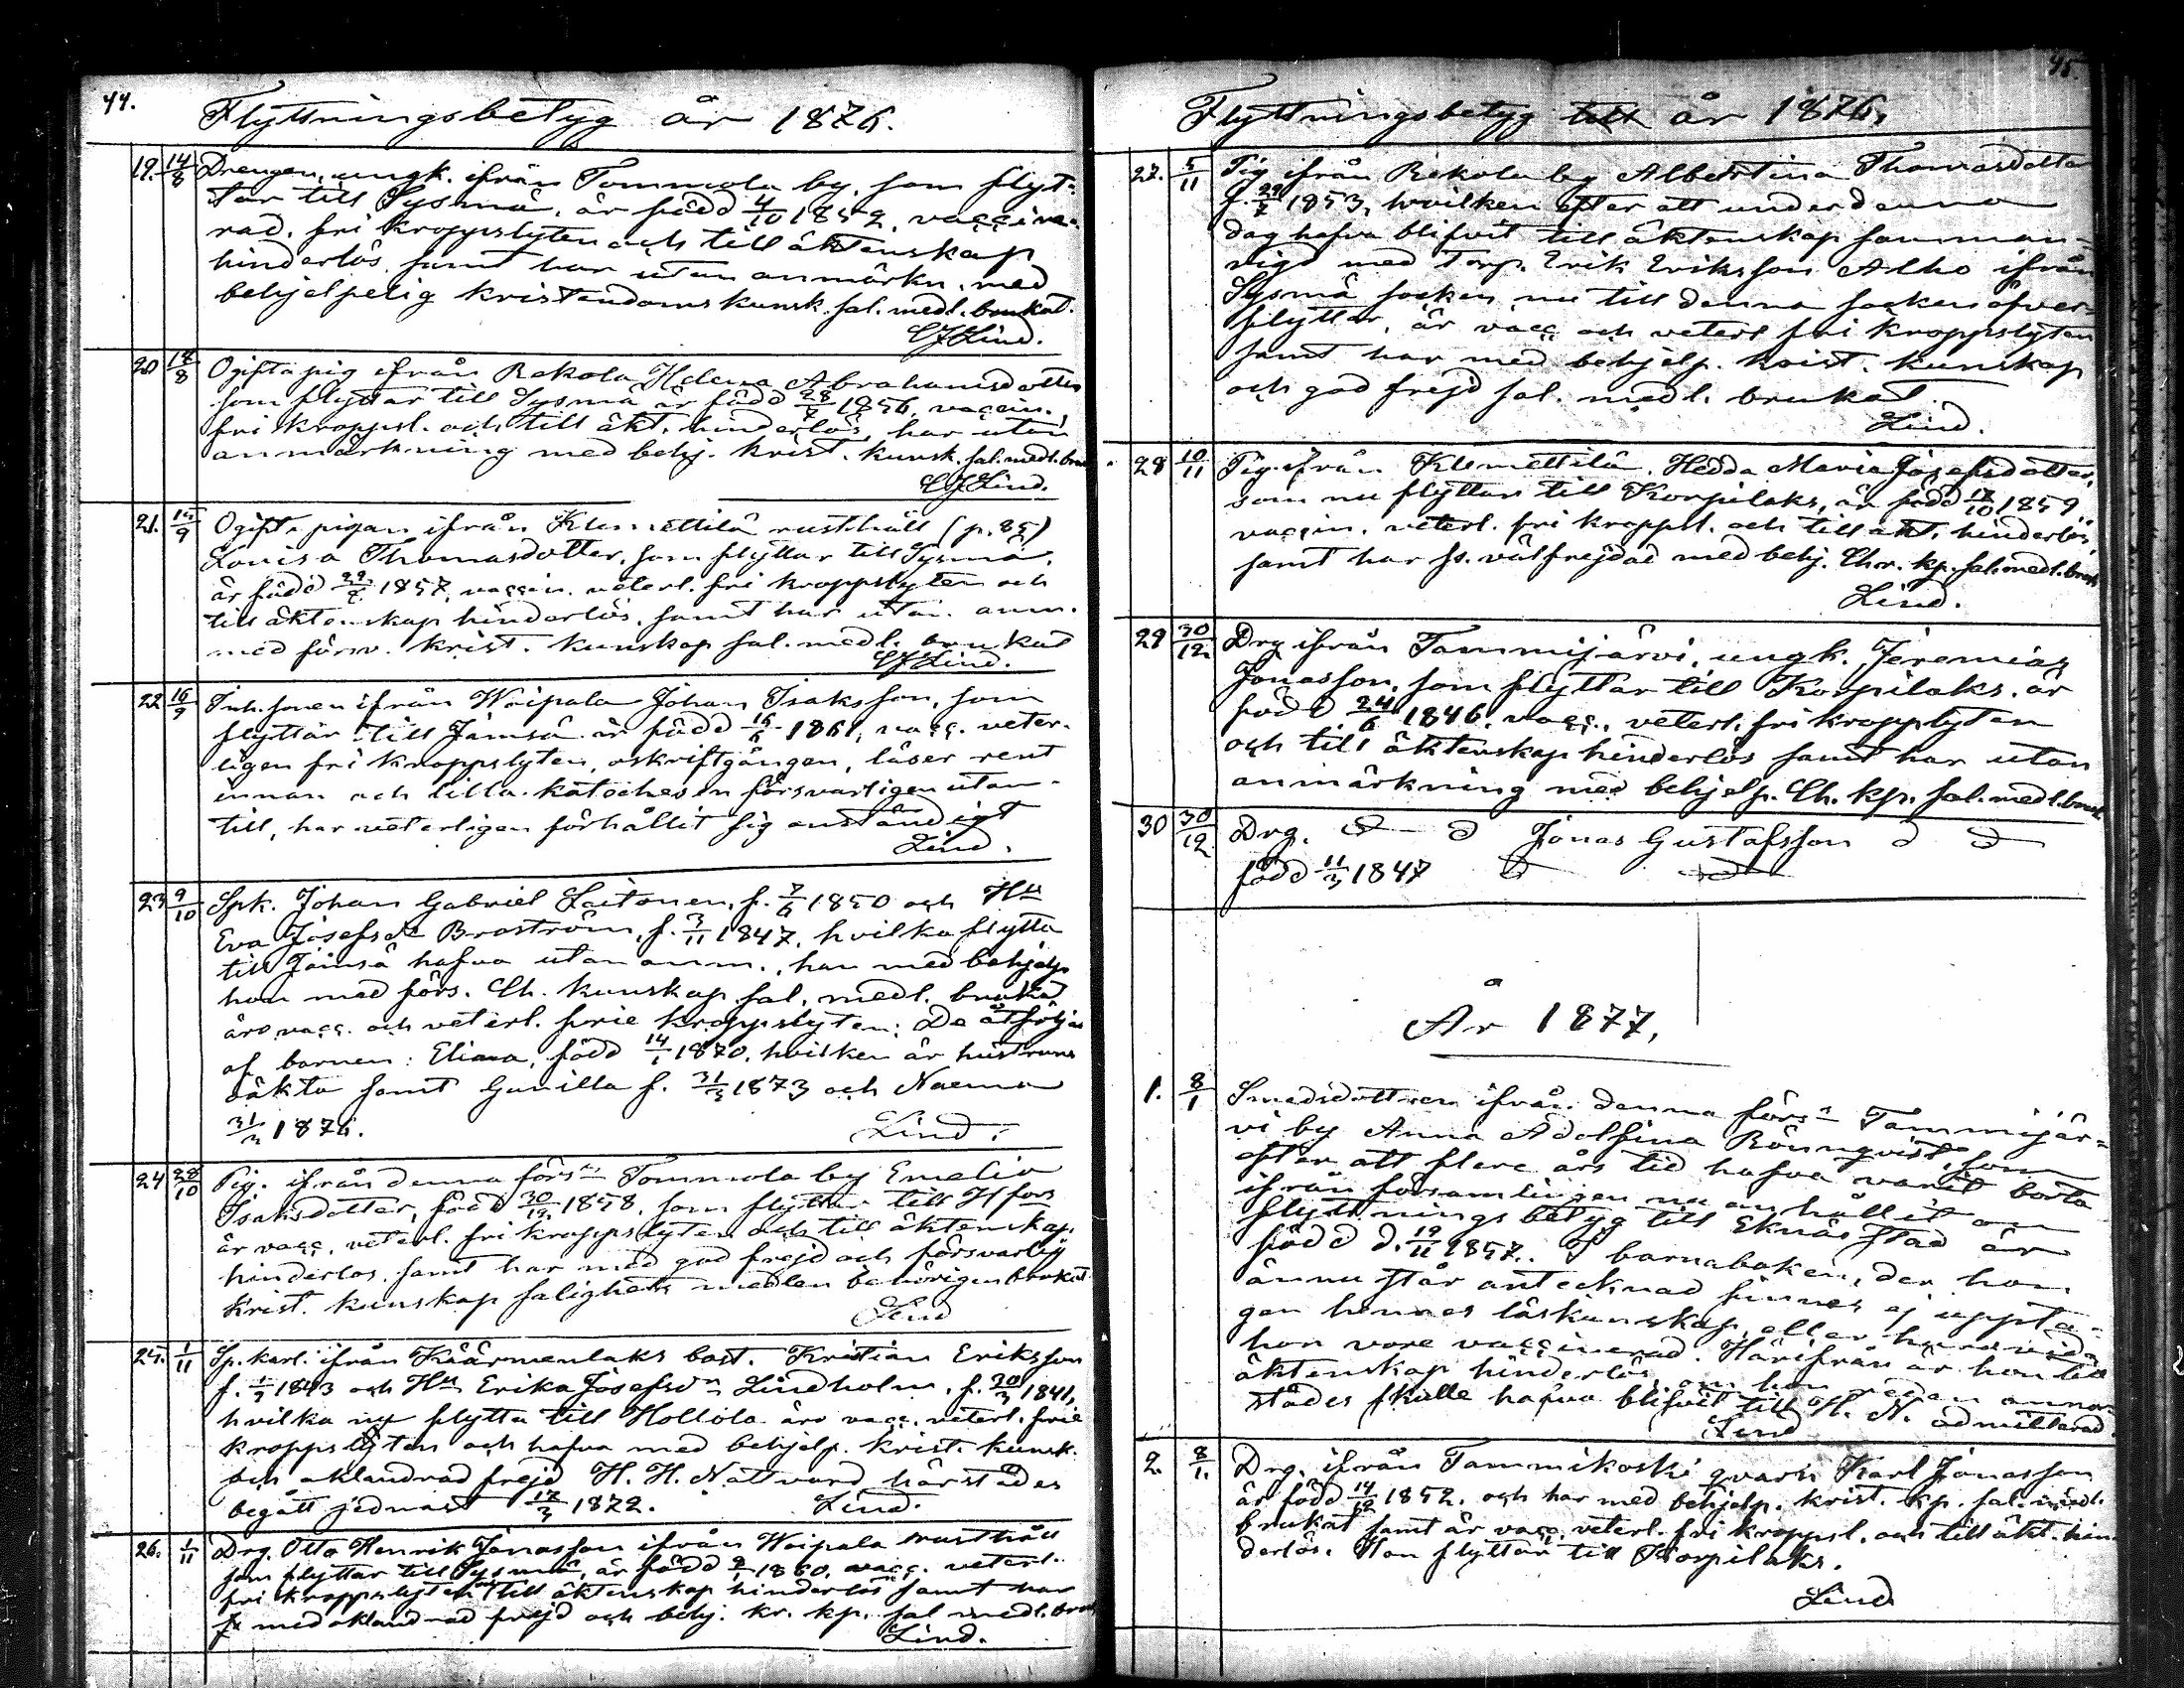 44.
Flyttningsbetyg år 1876.
19. 14/8 Drengen, ungk. ifrån Tommola by, som flyt-
tar till Sysmä, är född 4/10 1852, vaccine-
rad, fri kroppslyten och till äktenskap
hinderlös, samt har utan anmärkn. med
behjelpelig kristendomskunsk. sal. medl. brukat.
CJLind.
20 14/8 Ogifta pig ifrån Rekola Helena Abrahamsdotter
som flyttar till Sysmä är född 28/7 1856, vaccin.,
fri kroppsl. och till äkt. hinderlös, har utan
anmärkning med behj. krist. kunsk. sal. medl. bruk
CJLind.
21. 14/9 Ogifta pigan ifrån Klemettilä rusthåll (p. 85)
Lovisa Thomasdotter, som flyttar till Sysmä,
är född 1857, vaccin. veterl. fri kroppslyten och
till äktenskap hinderlös, samt har utan anm.
med försv. krist. kunskap sal. medl. brukat
CJLind.
22 16/9 Inh. sonen ifrån Waipala Johan Isaksson, som
flyttar till Jämsä är född 1861, vacc. veter-
ligen fri kroppslyten, oskriftgången, läser rent
innan och lilla katechesen försvarligen utan-
till, har veterligen förhållit sig anständigt
Lind.
23 9/10 Spk. Johan Gabriel Laitonen, f. 7/6 1850 och Hu
Eva Josefsdr Broström, f. 3/11 1847, hvilka flytta
till Jämsä hafva utan anm., han med behjelp.
hon med förs. Ch. kunskap sal. medl. brukat,
äro vacc. och veterl. frie kroppslyten. De åtföljas
af barnen: Elina, född 14/1 1870, hvilken är hustruns
oäkta samt Gunilla f. 31/3 1873 och Naema
31/3 1876.
Lind.
24 28/10 Pig. ifrån denna förs:s Tommola by Emelia
Isaksdotter, född 30/12 1858, som flyttar till Hfors
är vacc. veterl. fri kroppslyten och till äktenskap
hinderlös, samt har med god frejd och försvarlig
Krist. kunskap salighets medlen behörigen brukat.
Lind
25. 1/11 Sp. karl. ifrån Käärmenlaks bost. Kristian Eriksson
f. 1843 och Hu Erika Josefsdr Lindholm, f. 20/3 1841,
hvilka nu flytta till Hollola äro vacc. veterl. frie
kroppslyten och hafva med behjelp. krist. kunsk.
och oklandrad frejd H. H. Nattvard härstädes
begått sednast 17/3 1872. Lind.
26. 1/11 Drg. Otto Henrik Jonasson ifrån Waipala rusthåll
som flyttar till Sysmä, är född 1860, vacc. veterl.
fri kroppslyten till äktenskap hinderlös samt har
med oklandrad frejd och behj. kr. kp. sal medl. bruk
Lind.
45.
Flyttningsbetyg till år 1876.
27. 5/11 Pig ifrån Rekola by Albertina Thomasdotter
f. 29/7 1853, hvilken efter att under denna
dag hafva blifvit till äktenskap samman-
vigd med torp. Erik Eriksson Alho ifrån
Sysmä socken nu till denna socken öfver-
flyttar, är vacc. och veterl fri kroppslyten
samt har med behjelp. krist. kunskap
och god frejd sal. medl. brukat.
Lind.
28 10/11 Pig. ifrån Klemettilä, Hedda Maria Josefsdotter,
som nu flyttar till Korpilaks, är född 17/10 1859
vaccin. veterl. fri kroppsl. och till äkt. hinderlös,
samt har ss. välfrejdad med behj. Chr. kp. sal. medl. bruk
Lind.
29 30/12 Drg ifrån Tammijärvi, ungk. Jeremias
Jonasson, som flyttar till Korpilaks, är
född 24/6 1846, vacc., veterl. fri kroppslyten
och till äktenskap hinderlös samt har utan
anmärkning med behjelp. Ch. kp. sal. medl. bruk
30 30/12 Drg. d d Jonas Gustafsson d d
född 11/3 1847 d d
År 1877.
1. 8/1 Smedsdottern ifrån denna förs:s Tammijär-
vi by Anna Adolfina Rönnqvist, som
efter att flere års tid hafva varit borta
ifrån församlingen nu anhållit om
flyttningsbetyg till Eknäs stad är
född d. 19/11 1857. I barnaboken, der hon
ännu står antecknad finnes ej uppta-
gen hennes läskunskap eller huruvida
hon vore vaccinerad. Härifrån är hon till
äktenskap hinderlös, om hon redan annor-
städes skulle hafva blifvit till H. N. admitterad.
Lind
2. 8/1. Drg. ifrån Tammikoski qvarn Karl Jonasson
är född 14/12 1852. och har med behjelp. krist. kp. sal. medl.
brukat samt är vacc. veterl. fri kroppsl. och till äkt. hin-
derlös. Han flyttar till Korpilaks.
Lind